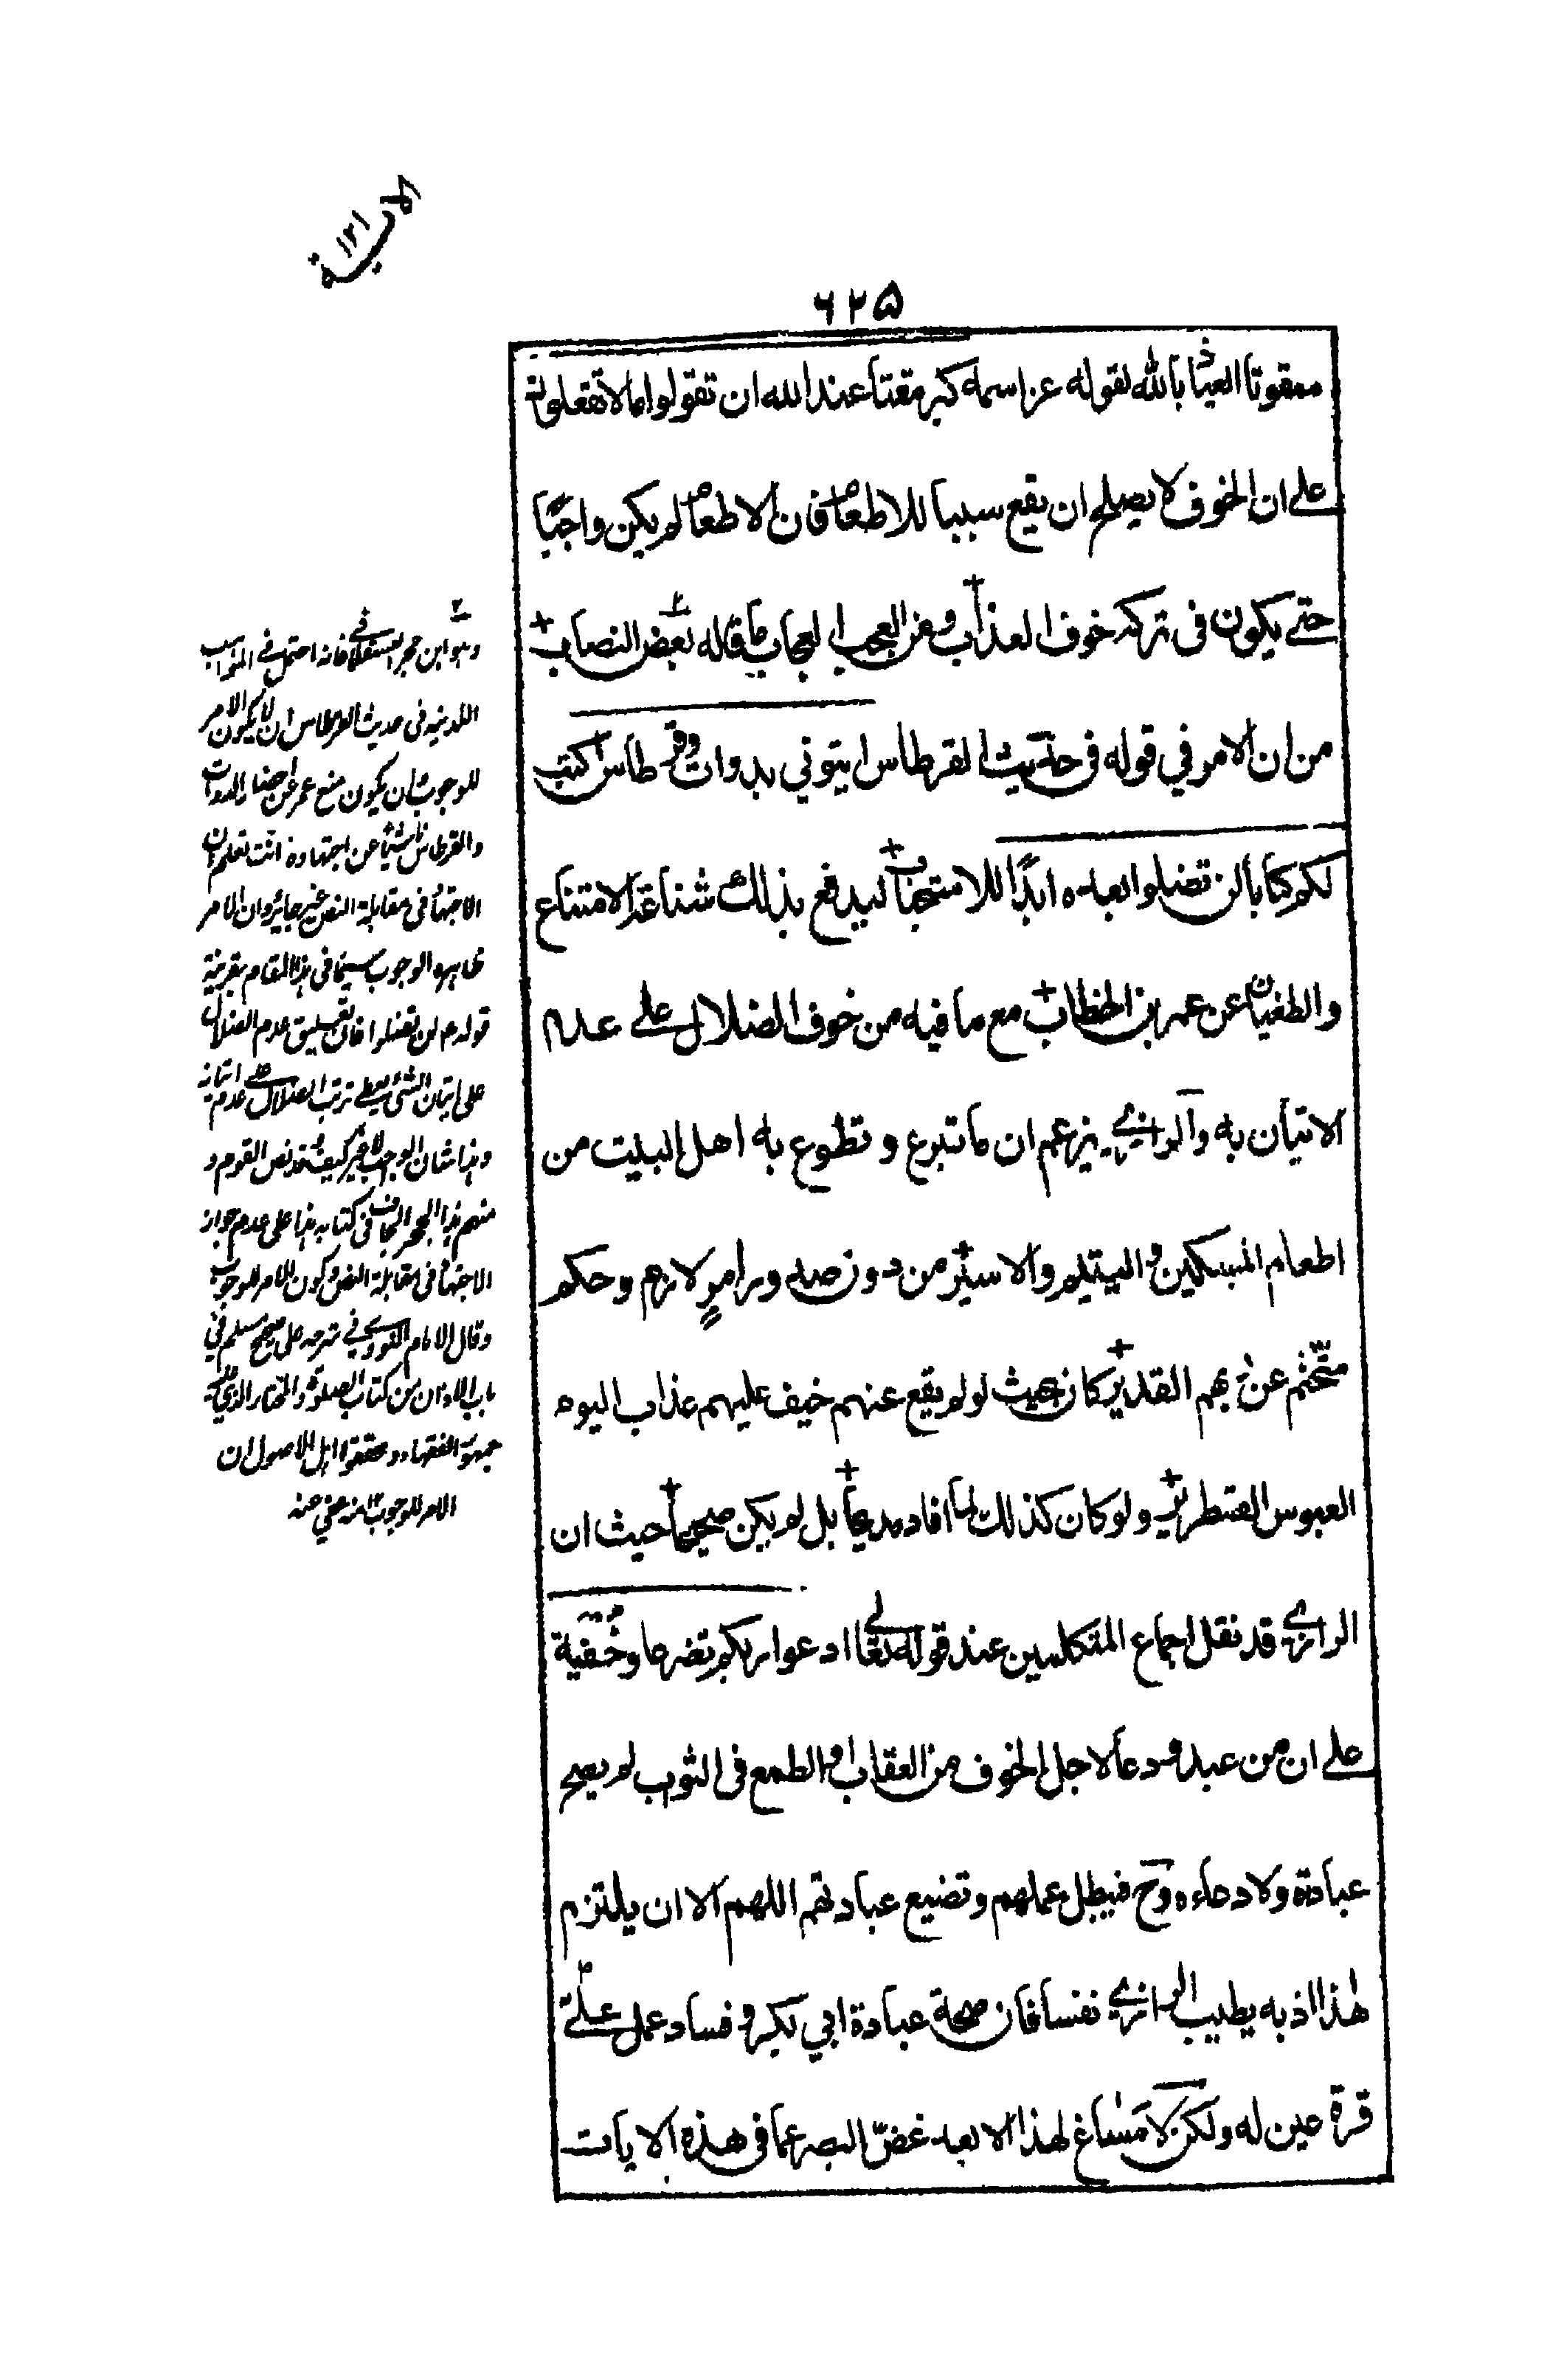 الآية
١٢١
٦٢٥
ممقوتا العياذ بالله لقوله عز اسمه كبر مقتا عند الله ان تقولوا ما لا تفعلون
على ان الخوف لا يصلح ان يقع سببا للاطعام فان الاطعام لم يكن واجبًا
حتى يكون فى تركه خوف العذاب ومن العجب العجاب ما قاله بعض النصاب
من ان الامر في قوله فى حديث القرطاس ايتوني بدوات وقرطاس اكتب
لكم كتابا لن تضلوا بعده ابدًا للاستحباب ليدفع بذلك شناعة الامتناع
والطغيان عن عمر بن الخطاب مع ما فيه من خوف الضلال على عدم
الاتيان به والرازي يزعم ان ما تبرع وتطوع به اهل البيت من
اطعام المسكين واليتيم والاسير من دون صدور امرٍ لازم وحكم
متحّتم عن ربهم القدير كان بحيث لو لم يقع عنهم خيف عليهم عذاب اليوم
العبوس القمطرير ولو كان كذلك لما افاد مدحا بل لم يكن صحيحا حيث ان
الرازي قد نقل اجماع المتكلمين عند قوله تعالى ادعوا ربكم تضرعا وخفية
على ان من عبد ودعا لاجل الخوف من العقاب والطمع فى الثواب لم يصح
عبادته ولا دعاءه وح فيبطل عملهم وتضيع عبادتهم اللهم الا ان يلتزم
هٰذا اذ به يطيب الرازي نفسا فان صحة عبادة ابي بكر وفساد عمل علي
قرة عين له ولكن لا مساغ لهذا الا بعد غضّ البصر عما فى هذه الايات
٢
وهو ابن حجر العسقلاني فانه احتمل في المواهب
اللدنيه فى حديث القرطاس ان لا يكون الامر
للوجوب وان يكون منع عمر عن احضار الدوات
والقرطاس ناشيا عن اجتهاده وانت تعلم ان
الاجتهاد فى مقابلة النص غير جائز وان الامر
ظاهره الوجوب سيما فى هذا المقام بقرينة
قوله م لن تضلوا فان تعليق عدم الضلال
على اتيان الشئ يعطي ترتب الضلال على عدم اتيانه
وهذا شان الوجوب لا غير كيف وقد نص القوم و
منهم هذا الحجر الجاف فى كتابه هذا على عدم جواز
الاجتهاد فى مقابلة النص وكون الامر للوجوب
وقال الامام النووي في شرحه على صحيح مسلم في
باب الاذان من كتاب الصلوة والمختار الذي عليه
جمهور الفقهاء ومحققوا اهل الاصول ان
الامر للوجوب منه عفي عنه